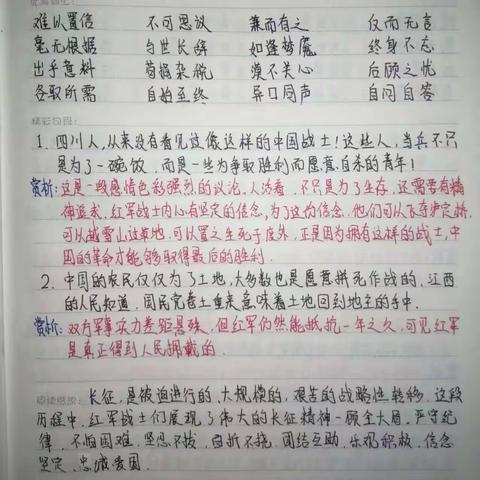 难以置信 不可思议 兼而有之 仅而无言
毫无根据 与世长辞 如逢梦魇 终身不忘
出乎意料 苛捐杂税 漠不关心 后顾之忧
各取所需 自始至终 异口同声 自问自答
精彩句段:
1. 四川人,从来没有看见过像这样的中国战士!这些人,当兵不只
是为了一碗饭,而是一些为争取胜利而愿意自杀的青年!
赏析:这是一段感情色彩强烈的议论,人活着,不只是为了生存,还需要有精
神追求,红军战士内心有坚定的信念,为了这份信念,他们可以飞夺泸定桥,
可以越雪山过草地,可以置之生死于度外,正是因为拥有这样的战士,中
国的革命才能够取得最后的胜利.
2. 中国的农民仅仅为了土地,大多数也是愿意拼死作战的,江西
的人民知道,国民党卷土重来意味着土地回到地主的手中.
赏析:双方军事实力差距悬殊,但红军仍然能抵抗一年之久,可见红军
是真正得到人民拥戴的.
阅读感悟: 长征,是被迫进行的、大规模的,艰苦的战略性转移.这段
历程中,红军战士们展现了伟大的长征精神—顾全大局,严守纪
律,不怕困难,坚忍不拔,百折不挠,团结互助,乐观积极,信念
坚定,忠诚爱国.